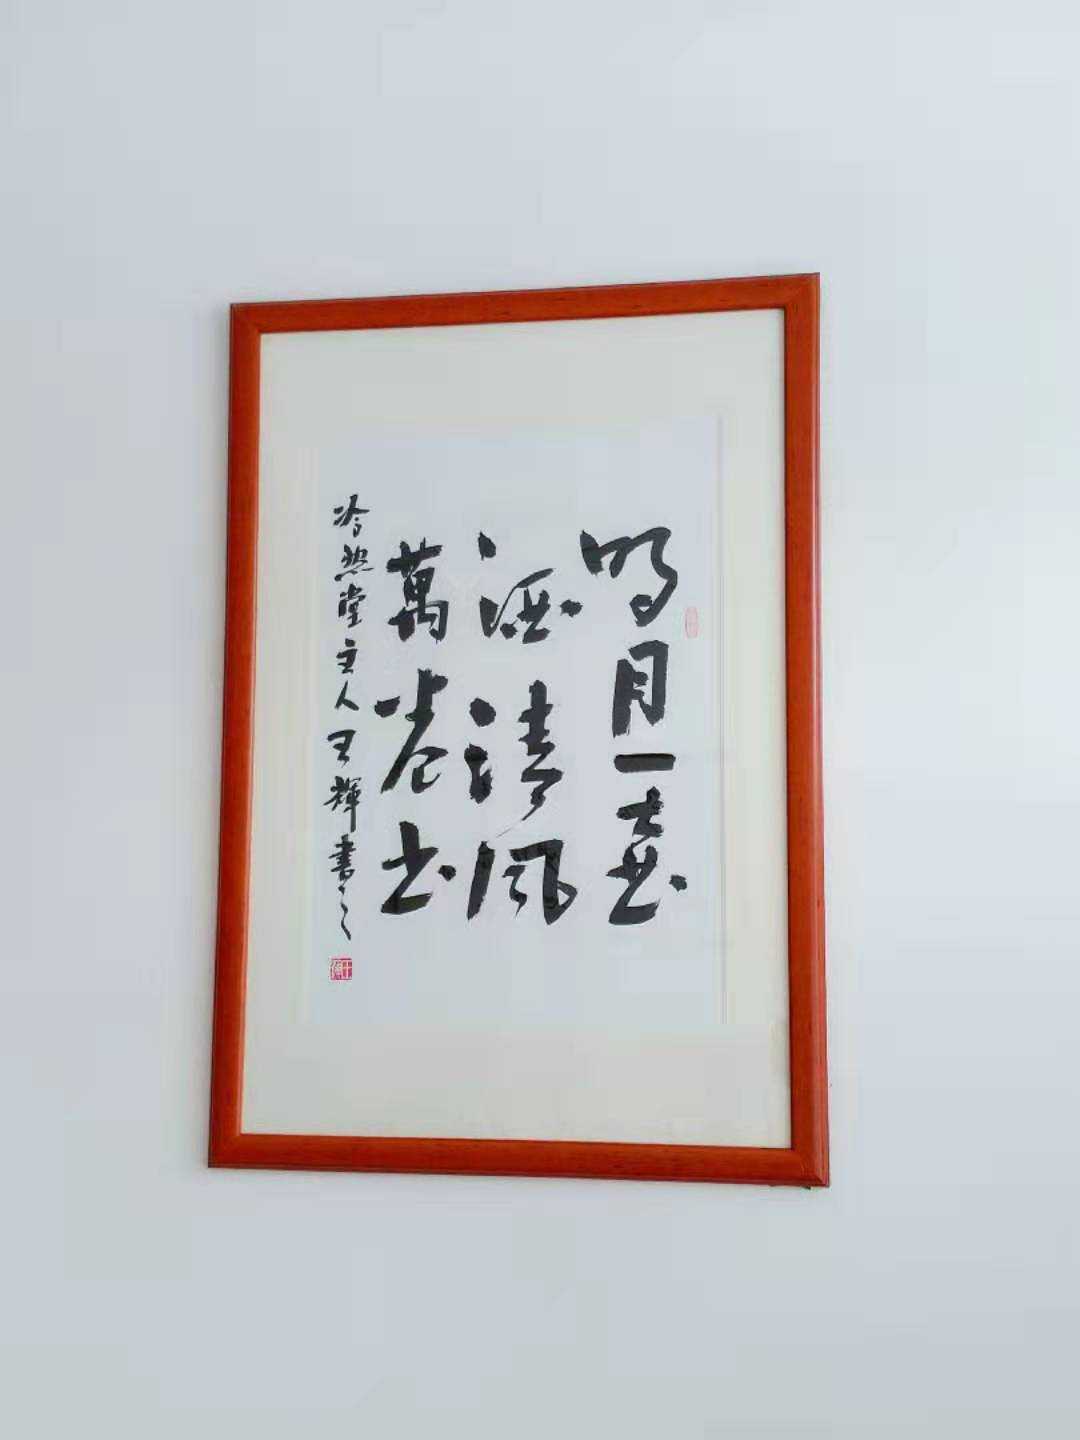 明月一壺
酒清風
萬卷書
冷然堂主人王輝書之